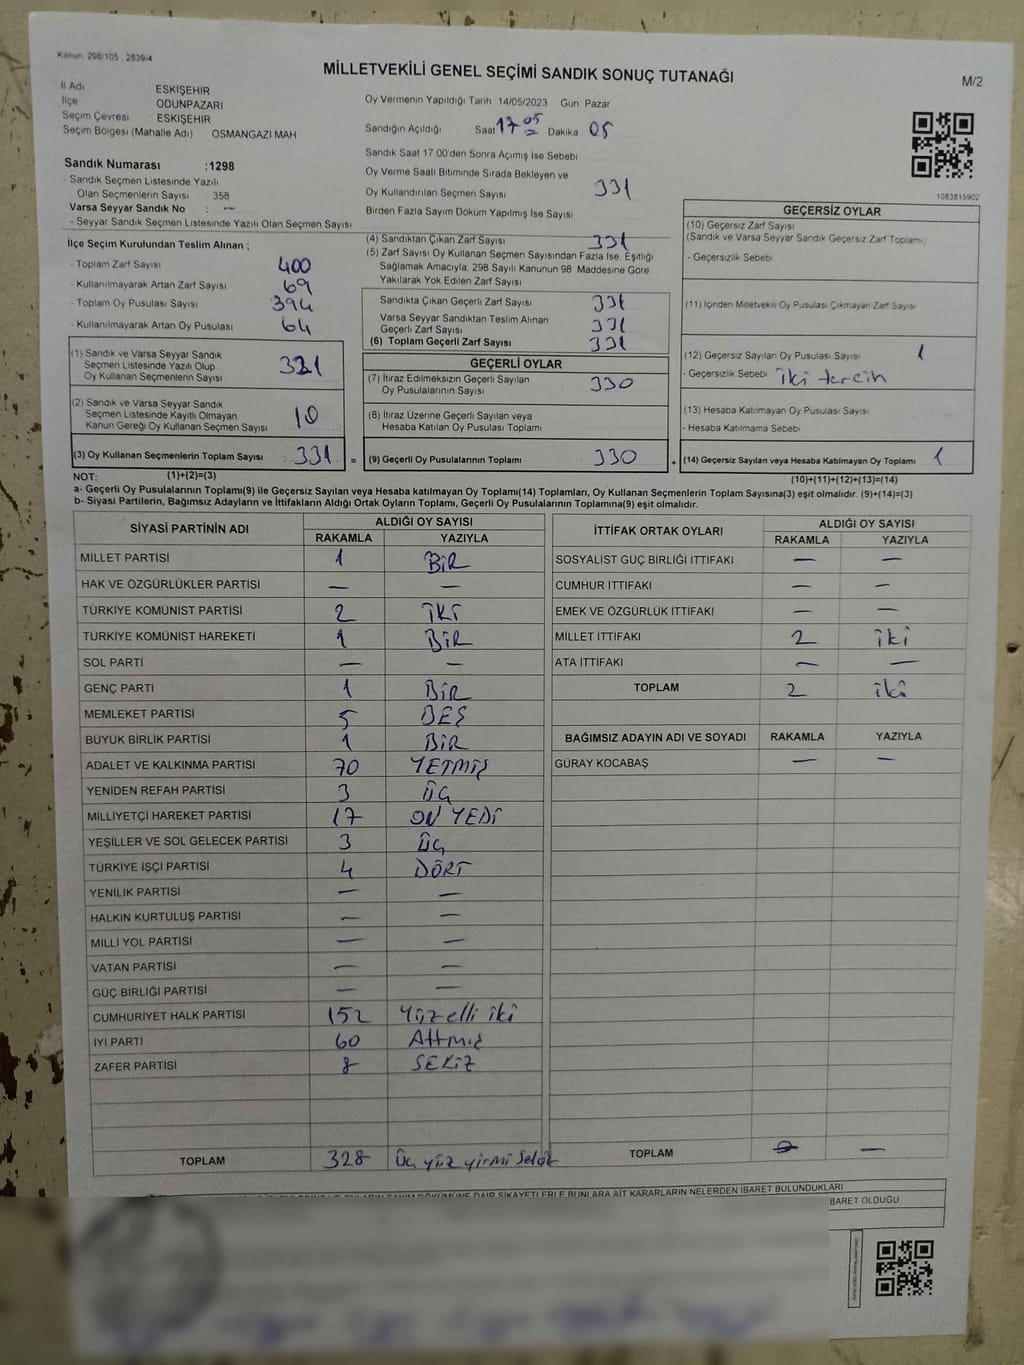 Kanun: 298/105 , 2839/4
MİLLETVEKİLİ GENEL SEÇİMİ SANDIK SONUÇ TUTANAĞI
M/2
İl Adı ESKİŞEHİR
İlçe ODUNPAZARI
Seçim Çevresi ESKİŞEHİR
Seçim Bölgesi (Mahalle Adı) OSMANGAZİ MAH
Oy Vermenin Yapıldığı Tarih 14/05/2023 Gün: Pazar
Sandığın Açıldığı Saat 17 05 Dakika 05
Sandık Saat 17.00'den Sonra Açılmış İse Sebebi
Oy Verme Saati Bitiminde Sırada Bekleyen ve
Oy Kullandırılan Seçmen Sayısı 331
Birden Fazla Sayım Döküm Yapılmış İse Sayısı
1083815902
Sandık Numarası :1298
- Sandık Seçmen Listesinde Yazılı
Olan Seçmenlerin Sayısı 358
Varsa Seyyar Sandık No : --
- Seyyar Sandık Seçmen Listesinde Yazılı Olan Seçmen Sayısı
İlçe Seçim Kurulundan Teslim Alınan ;
- Toplam Zarf Sayısı 400
- Kullanılmayarak Artan Zarf Sayısı 69
- Toplam Oy Pusulası Sayısı 394
- Kullanılmayarak Artan Oy Pusulası 64
(1) Sandık ve Varsa Seyyar Sandık
Seçmen Listesinde Yazılı Olup
Oy Kullanan Seçmenlerin Sayısı 321
(2) Sandık ve Varsa Seyyar Sandık
Seçmen Listesinde Kayıtlı Olmayan
Kanun Gereği Oy Kullanan Seçmen Sayısı 10
(3) Oy Kullanan Seçmenlerin Toplam Sayısı 331 =
(4) Sandıktan Çıkan Zarf Sayısı 331
(5) Zarf Sayısı Oy Kullanan Seçmen Sayısından Fazla İse, Eşitliği
Sağlamak Amacıyla, 298 Sayılı Kanunun 98. Maddesine Göre
Yakılarak Yok Edilen Zarf Sayısı
Sandıkta Çıkan Geçerli Zarf Sayısı 331
Varsa Seyyar Sandıktan Teslim Alınan
Geçerli Zarf Sayısı 331
(6) Toplam Geçerli Zarf Sayısı 331
GEÇERLİ OYLAR
(7) İtiraz Edilmeksizin Geçerli Sayılan
Oy Pusulalarının Sayısı 330
(8) İtiraz Üzerine Geçerli Sayılan veya
Hesaba Katılan Oy Pusulası Toplamı
(9) Geçerli Oy Pusulalarının Toplamı 330 +
GEÇERSİZ OYLAR
(10) Geçersiz Zarf Sayısı
(Sandık ve Varsa Seyyar Sandık Geçersiz Zarf Toplamı)
- Geçersizlik Sebebi
(11) İçinden Milletvekili Oy Pusulası Çıkmayan Zarf Sayısı
(12) Geçersiz Sayılan Oy Pusulası Sayısı 1
- Geçersizlik Sebebi iki tercih
(13) Hesaba Katılmayan Oy Pusulası Sayısı
- Hesaba Katılmama Sebebi
(14) Geçersiz Sayılan veya Hesaba Katılmayan Oy Toplamı 1
NOT: (1)+(2)=(3)
(10)+(11)+(12)+(13)=(14)
a- Geçerli Oy Pusulalarının Toplamı(9) ile Geçersiz Sayılan veya Hesaba katılmayan Oy Toplamı(14) Toplamları, Oy Kullanan Seçmenlerin Toplam Sayısına(3) eşit olmalıdır. (9)+(14)=(3)
b- Siyasi Partilerin, Bağımsız Adayların ve İttifakların Aldığı Ortak Oyların Toplamı, Geçerli Oy Pusulalarının Toplamına(9) eşit olmalıdır.
SİYASİ PARTİNİN ADI ALDIĞI OY SAYISI
RAKAMLA YAZIYLA
MİLLET PARTİSİ 1 BİR
HAK VE ÖZGÜRLÜKLER PARTİSİ — —
TÜRKİYE KOMÜNİST PARTİSİ 2 İKİ
TÜRKİYE KOMÜNİST HAREKETİ 1 BİR
SOL PARTİ — —
GENÇ PARTİ 1 BİR
MEMLEKET PARTİSİ 5 BEŞ
BÜYÜK BİRLİK PARTİSİ 1 BİR
ADALET VE KALKINMA PARTİSİ 70 YETMİŞ
YENİDEN REFAH PARTİSİ 3 ÜÇ
MİLLİYETÇİ HAREKET PARTİSİ 17 ON YEDİ
YEŞİLLER VE SOL GELECEK PARTİSİ 3 ÜÇ
TÜRKİYE İŞÇİ PARTİSİ 4 DÖRT
YENİLİK PARTİSİ — —
HALKIN KURTULUŞ PARTİSİ — —
MİLLİ YOL PARTİSİ — —
VATAN PARTİSİ — —
GÜÇ BİRLİĞİ PARTİSİ — —
CUMHURİYET HALK PARTİSİ 152 Yüz elli iki
İYİ PARTİ 60 Altmış
ZAFER PARTİSİ 8 SEKİZ
TOPLAM 328 Üç yüz yirmi Sekiz
İTTİFAK ORTAK OYLARI ALDIĞI OY SAYISI
RAKAMLA YAZIYLA
SOSYALİST GÜÇ BİRLİĞİ İTTİFAKI — —
CUMHUR İTTİFAKI — —
EMEK VE ÖZGÜRLÜK İTTİFAKI — —
MİLLET İTTİFAKI 2 iki
ATA İTTİFAKI — —
TOPLAM 2 iki
BAĞIMSIZ ADAYIN ADI VE SOYADI RAKAMLA YAZIYLA
GÜRAY KOCABAŞ — —
TOPLAM —
DAİR ŞİKAYETLERLE BUNLARA AİT KARARLARIN NELERDEN İBARET BULUNDUKLARI
BARET OLDUĞU